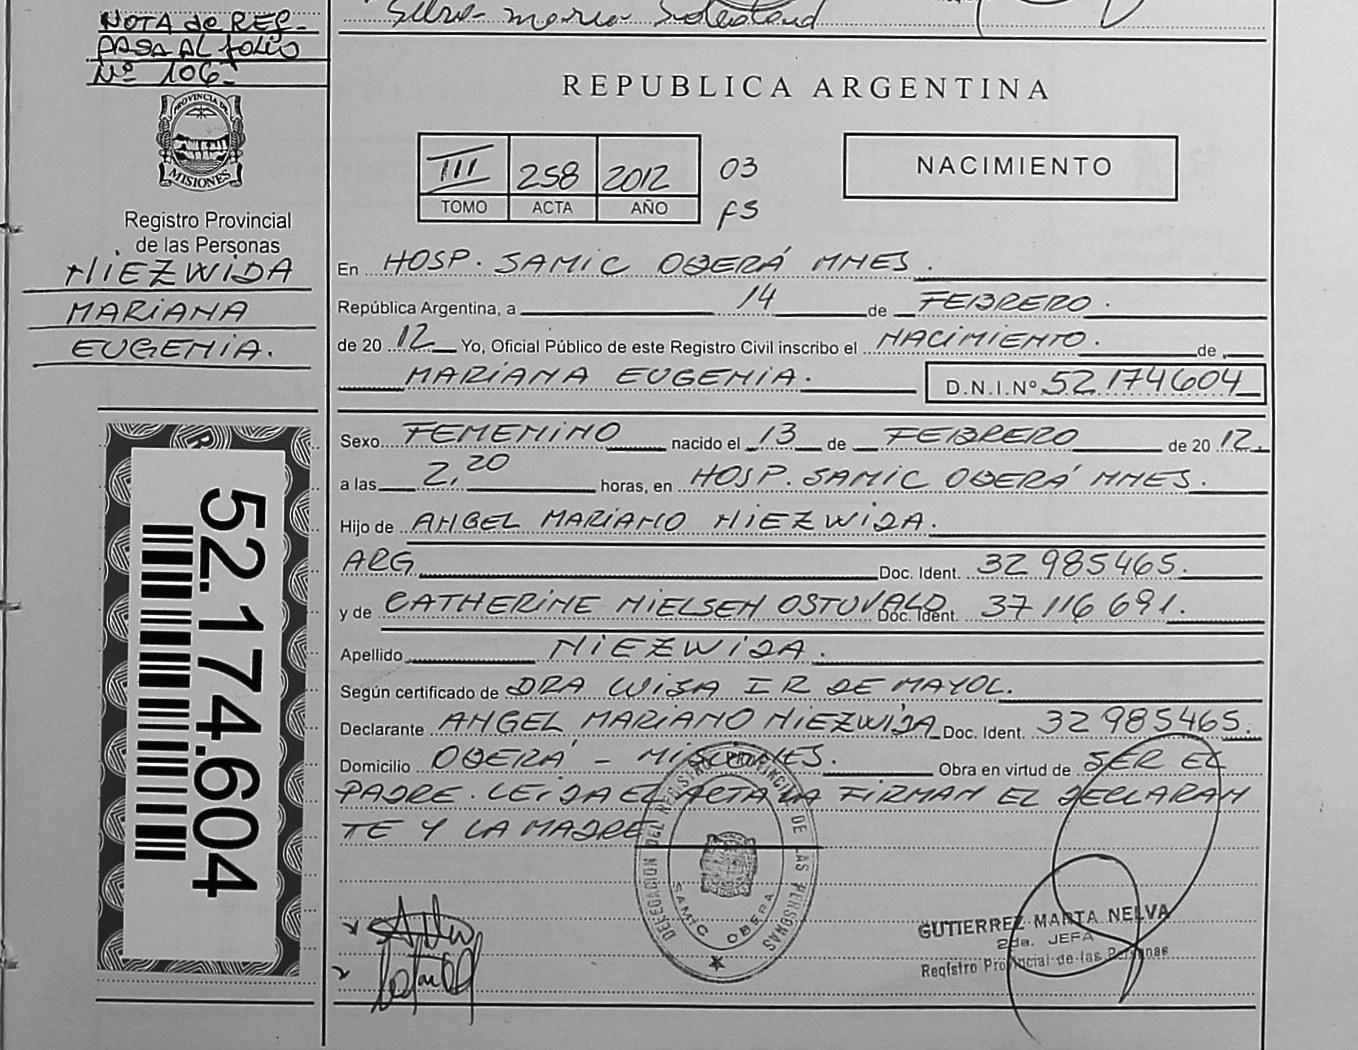 NOTA de REF-
PASA AL folio
Nº 106-
PROVINCIA DE
MISIONES
Registro Provincial
de las Personas
NIEZWIDA
MARIANA
EUGENIA.
52.174.604
REPUBLICA ARGENTINA
III 258 2012 03
TOMO ACTA AÑO FS
NACIMIENTO
En HOSP. SAMIC OBERÁ MNES.
República Argentina, a 14 de FEBRERO.
de 20 12 Yo, Oficial Público de este Registro Civil inscribo el NACIMIENTO. de
MARIANA EUGENIA. D.N.I.Nº 52.174604
Sexo FEMENINO nacido el 13 de FEBRERO de 20 12.
a las 2,20 horas, en HOSP. SAMIC OBERÁ MNES.
Hijo de ANGEL MARIANO NIEZWIDA.
ARG Doc. Ident. 32985465.
y de CATHERINE NIELSEN OSTUVALD Doc. Ident. 37116691.
Apellido NIEZWIDA.
Según certificado de DRA WIDA I R DE MAYOL.
Declarante ANGEL MARIANO NIEZWIDA Doc. Ident. 32985465.
Domicilio OBERÁ - MISIONES. Obra en virtud de SER EL
PADRE. LEIDA EL ACTA LA FIRMAN EL DECLARAN
TE Y LA MADRE
DELEGACION DEL REGISTRO PROVINCIAL DE LAS PERSONAS
SAMIC OBERA
GUTIERREZ MARTA NELVA
2da. JEFA
Registro Provincial de las Personas